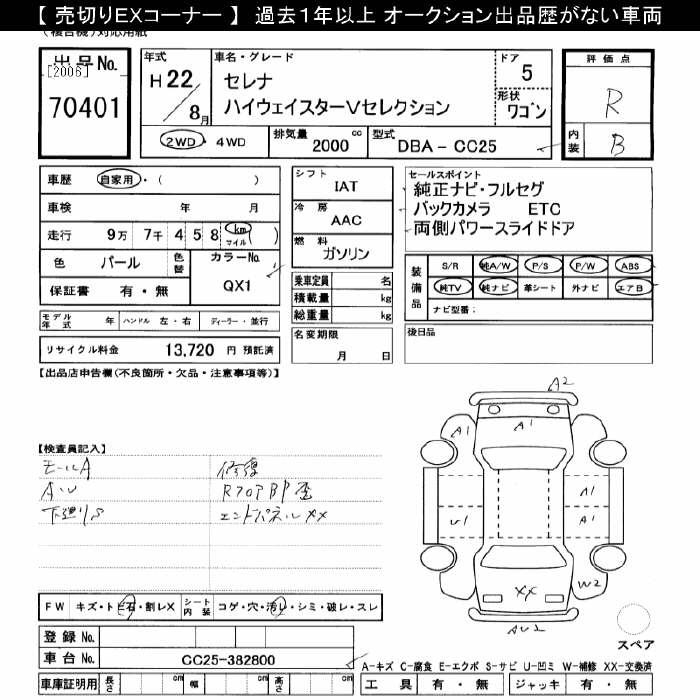 【 売切りEXコーナー 】 過去1年以上 オークション出品歴がない車両
(複合機)対応用紙
出品No.
[2006]
70401
年式
H22/8月
車名・グレード
セレナ
ハイウェイスターVセレクション
ドア
5
形状
ワゴン
評価点
R
内装
B
2WD・4WD
排気量
2000 cc
型式
DBA-CC25
車歴 自家用・( )
車検 年 月
走行 9万 7千 4 5 8 km マイル
色 パール
色替
カラーNo.
QX1
保証書 有・無
モデル年式 年 ハンドル 左・右 ディーラー・並行
リサイクル料金 13,720 円 預託済
シフト
IAT
冷房
AAC
燃料
ガソリン
乗車定員 名
積載量 kg
総重量 kg
名変期限
月 日
セールスポイント
純正ナビ・フルセグ
バックカメラ ETC
両側パワースライドドア
装備品
S/R 純A/W P/S P/W ABS
純TV 純ナビ 革シート 外ナビ エアB
ナビ型番:
後日品
【出品店申告欄(不良箇所・欠品・注意事項等)】
【検査員記入】
モールA 修復
AU RフロアBP歪
下廻りS エンドパネルXX
A2
A1
A1
A1
U1
A1
XX
W2
AU2
FW キズ・トビ石・割レX
シート内装 コゲ・穴・汚レ・シミ・破レ・スレ
登録 No.
車台 No. CC25-382800
車庫証明用 長さ cm 幅 cm 高さ cm
スペア
A-キズ C-腐食 E-エクボ S-サビ U-凹ミ W-補修 XX-交換済
工具 有・無 ジャッキ 有・無